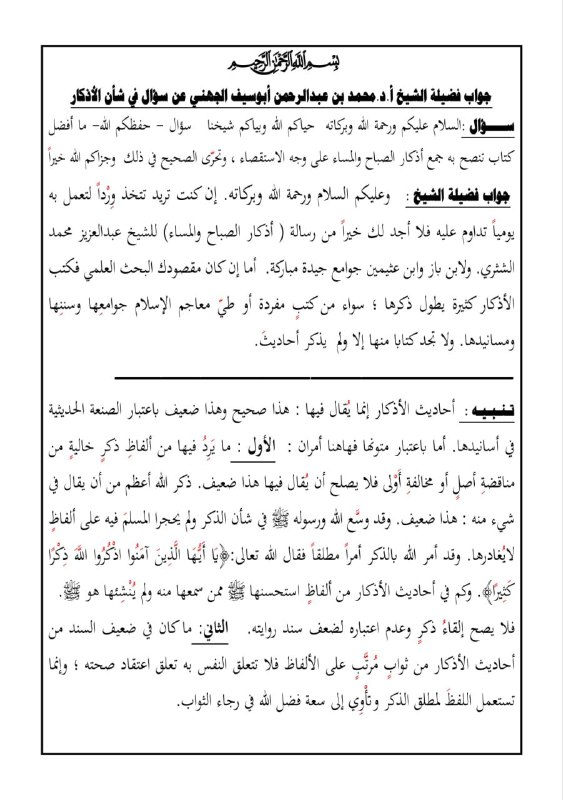 بسم الله الرحمن الرحيم
جواب فضيلة الشيخ أ.د.محمد بن عبدالرحمن أبوسيف الجهني عن سؤال في شأن الأذكار
ســؤال :السلام عليكم ورحمة الله وبركاته حياكم الله وبياكم شيخنا سؤال - حفظكم الله- ما أفضل
كتاب ننصح به جمع أذكار الصباح والمساء على وجه الاستقصاء ، وتحرّى الصحيح في ذلك وجزاكم الله خيراً
جواب فضيلة الشيخ : وعليكم السلام ورحمة الله وبركاته. إن كنت تريد تتخذ وِرْداً لتعمل به
يومياً تداوم عليه فلا أجد لك خيراً من رسالة ( أذكار الصباح والمساء) للشيخ عبدالعزيز محمد
الشثري. ولابن باز وابن عثيمين جوامع جيدة مباركة. أما إن كان مقصودك البحث العلمي فكتب
الأذكار كثيرة يطول ذكرها ؛ سواء من كتبٍ مفردة أو طيّ معاجم الإسلام جوامعِها وسننِها
ومسانيدها. ولا تجد كتابا منها إلا ولم يذكر أحاديثَ.
تـنـبـيـه : أحاديث الأذكار إنما يُقال فيها : هذا صحيح وهذا ضعيف باعتبار الصنعة الحديثية
في أسانيدها. أما باعتبار متونها فهاهنا أمران : الأول : ما يَرِدُ فيها من ألفاظِ ذكرٍ خاليةٍ من
مناقضةِ أصلٍ أو مخالفةِ أَوْلى فلا يصلح أن يُقال فيها هذا ضعيف. ذكر الله أعظم من أن يقال في
شيء منه : هذا ضعيف. وقد وسَّع الله ورسوله ﷺ في شأن الذكر ولم يحجرا المسلمَ فيه على ألفاظٍ
لايُغادرها. وقد أمر الله بالذكر أمراً مطلقاً فقال الله تعالى:﴿يَا أَيُّهَا الَّذِينَ آمَنُوا اذْكُرُوا اللَّهَ ذِكْرًا
كَثِيرًا﴾. وكم في أحاديث الأذكار من ألفاظٍ استحسنها ﷺ ممن سمعها منه ولم يُنْشئها هو ﷺ.
فلا يصح إلقاءُ ذكرٍ وعدم اعتباره لضعف سند روايته. الثاني: ما كان في ضعيف السند من
أحاديث الأذكار من ثوابٍ مُرتَّبٍ على الألفاظ فلا تتعلق النفس به تعلق اعتقاد صحته ؛ وإنما
تستعمل اللفظَ لمطلق الذكر وتأْوِي إلى سعة فضل الله في رجاء الثواب.